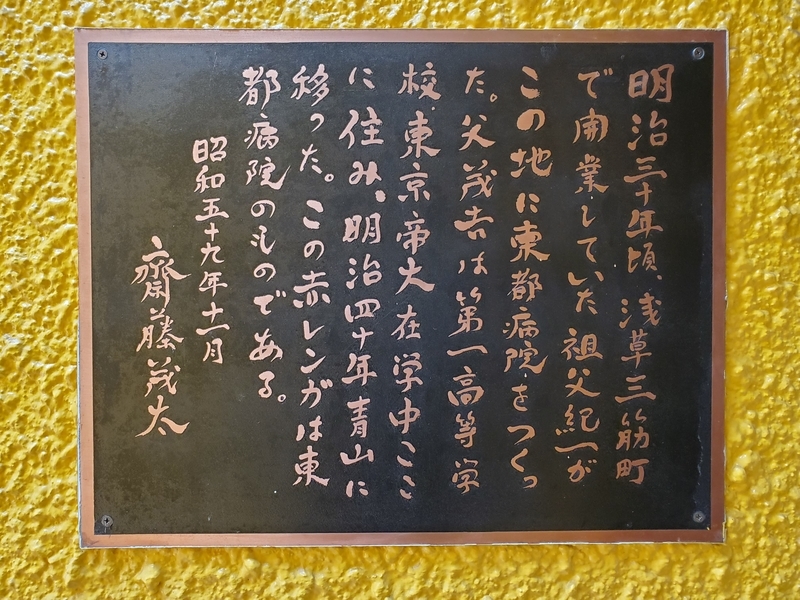 明治三十年頃、浅草三筋町
で開業していた祖父紀一が
この地に東都病院をつくっ
た。父茂吉は第一高等学
校、東京帝大在学中ここ
に住み、明治四十年青山に
移った。この赤レンガは東
都病院のものである。
昭和五十九年十一月
齋藤茂太